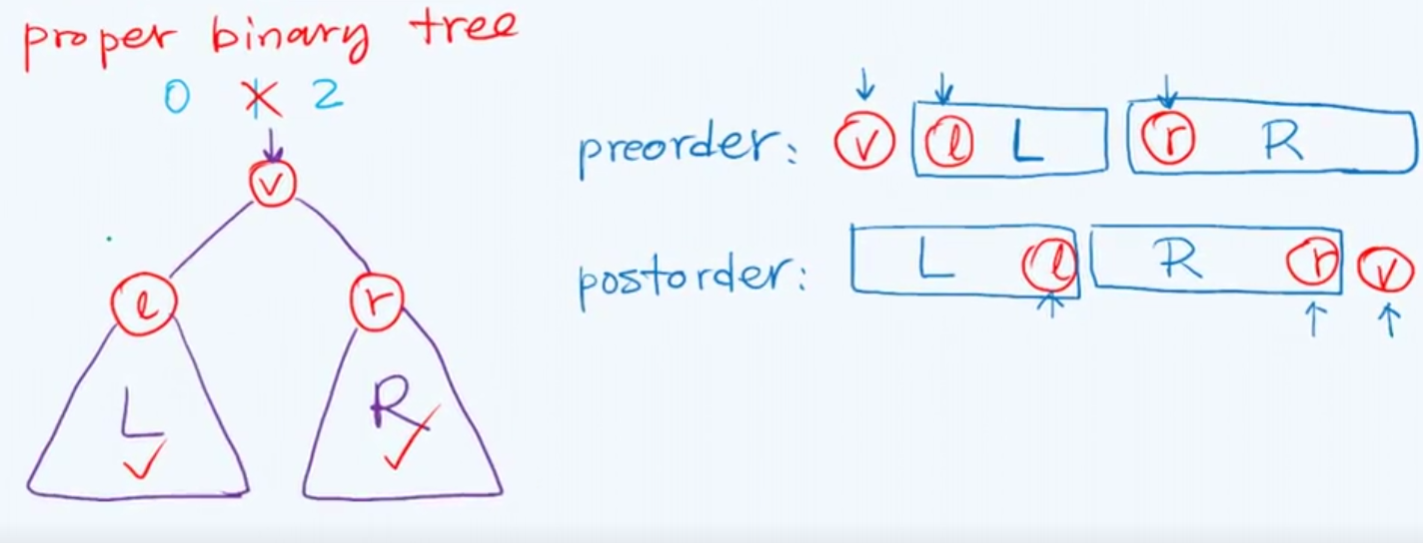 proper binary tree
0 X 2
v
l r
L R
preorder: v l L r R
postorder: L l R r v